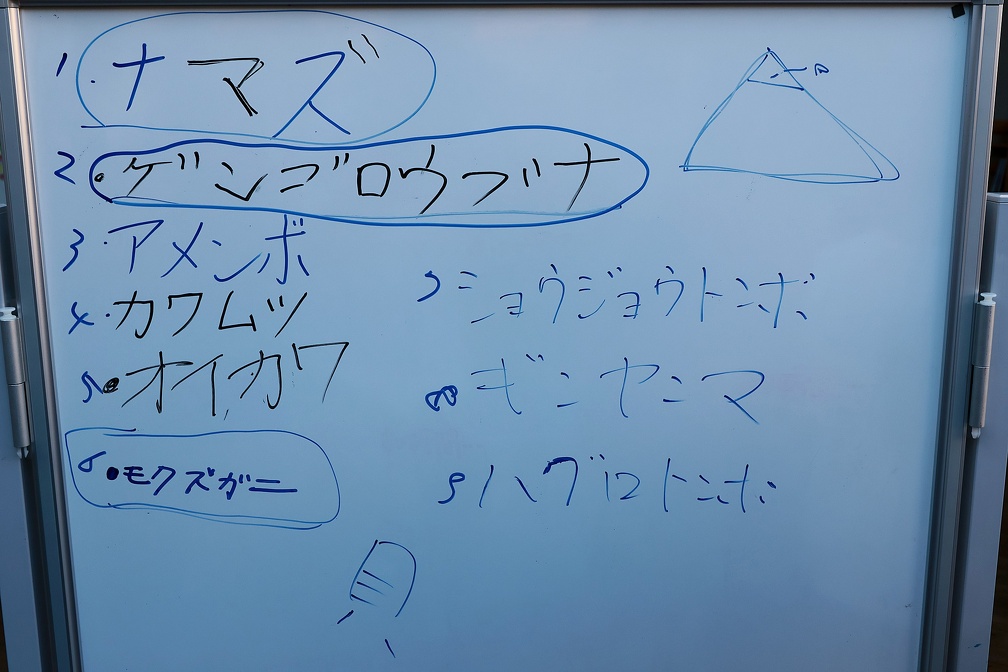 1.ナマズ
2・ゲンゴロウブナ
3・アメンボ
4・カワムツ
5・オイカワ
6・モクズガニ
7 ショウジョウトンボ
8 ギンヤンマ
9 ハグロトンボ